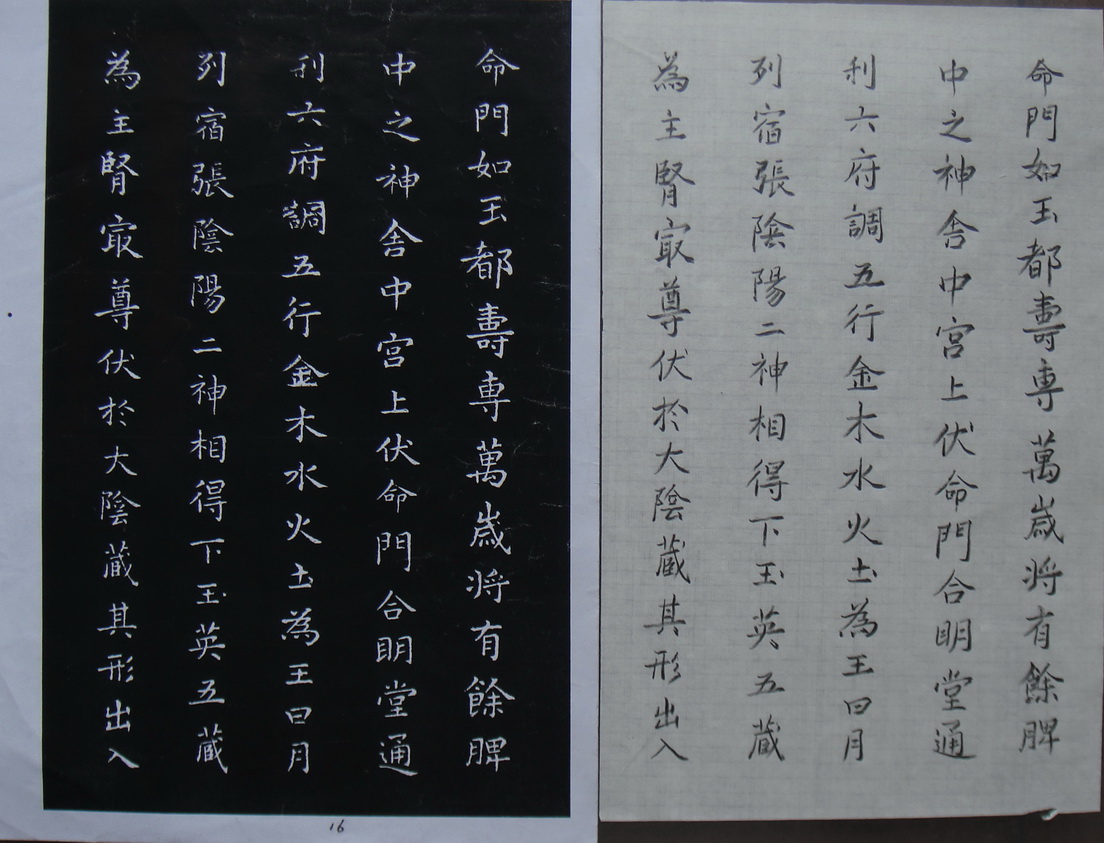 命門如玉都壽專萬歲将有餘脾
中之神舎中宮上伏命門合明堂通
利六府調五行金木水火土為王日月
列宿張陰陽二神相得下玉英五蔵
為主腎㝡尊伏於大陰蔵其形出入
16
命門如玉都壽専萬歲将有餘脾
中之神舎中宮上伏命門合明堂通
利六府調五行金木水火土為王日月
列宿張陰陽二神相得下玉英五蔵
為主腎㝡尊伏於大陰蔵其形出入